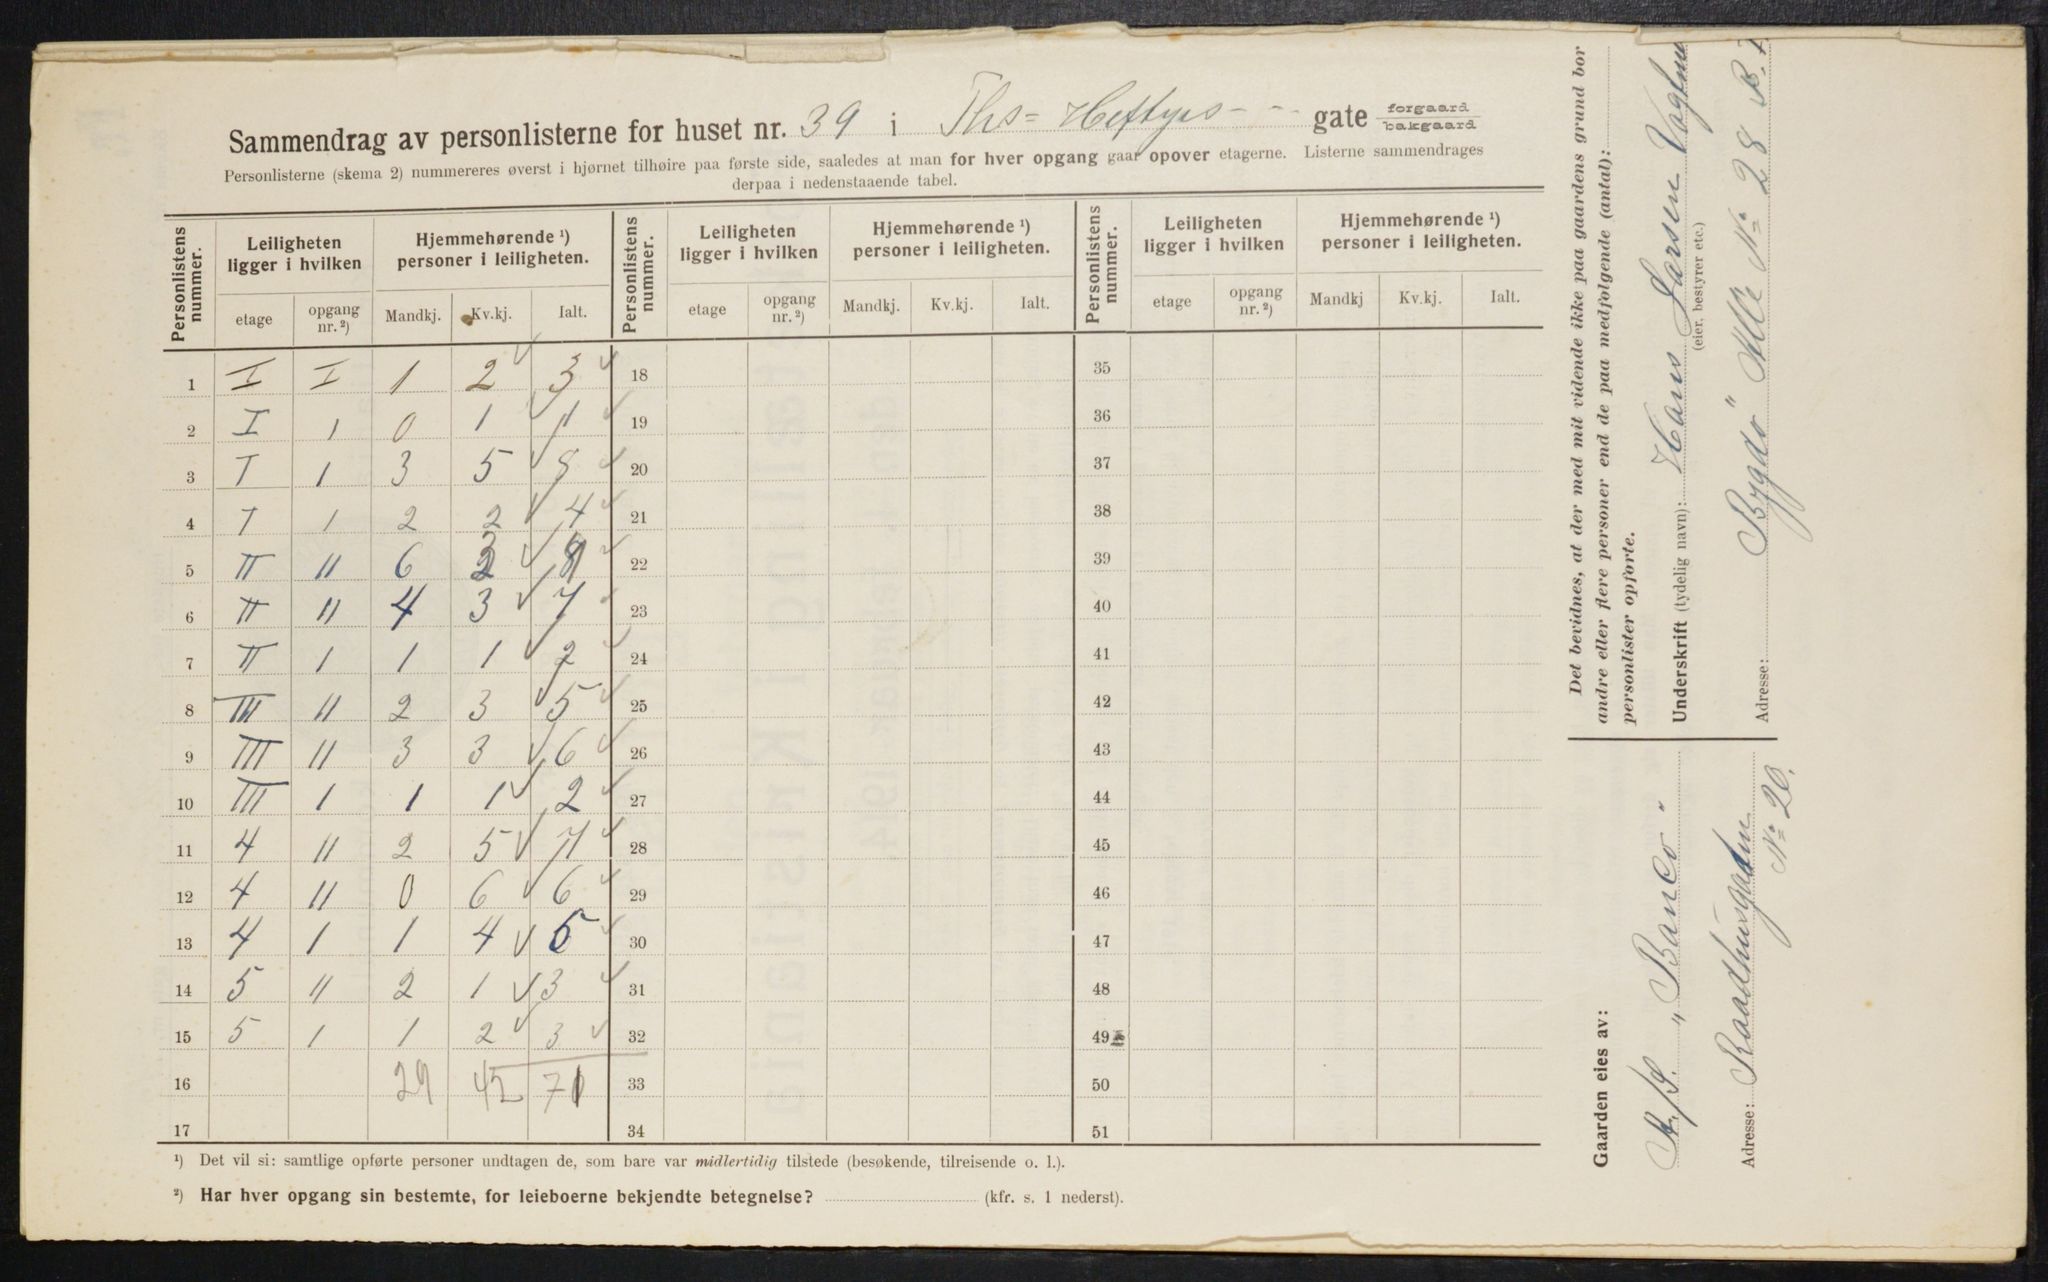 Sammendrag av personlisterne for huset nr. 39 i Ths= Heftyes - - - gate forgaard bakgaard
Personlisterne (skema 2) nummereres øverst i hjørnet tilhøire paa første side, saaledes at man for hver opgang gaar opover etagerne. Listerne sammendrages
derpaa i nedenstaaende tabel.
Personlistens nummer. Leiligheten ligger i hvilken Hjemmehørende ¹) personer i leiligheten. Personlistens nummer. Leiligheten ligger i hvilken Hjemmehørende ¹) personer i leiligheten. Personlistens nummer. Leiligheten ligger i hvilken Hjemmehørende ¹) personer i leiligheten.
etage opgang nr.²) Mandkj. Kv.kj. Ialt. etage opgang nr.²) Mandkj. Kv.kj. Ialt. etage opgang nr.²) Mandkj Kv.kj. Ialt.
1 I I 1 2 3 18 35
2 I 1 0 1 1 19 36
3 I 1 3 5 8 20 37
4 I 1 2 2 4 21 38
5 II II 6 3 9 22 39
6 II II 4 3 7 23 40
7 II 1 1 1 2 24 41
8 III II 2 3 5 25 42
9 III II 3 3 6 26 43
10 III 1 1 1 2 27 44
11 4 II 2 5 7 28 45
12 4 II 0 6 6 29 46
13 4 1 1 4 5 30 47
14 5 II 2 1 3 31 48
15 5 1 1 2 3 32 49
16 29 42 71 33 50
17 34 51
¹) Det vil si: samtlige opførte personer undtagen de, som bare var midlertidig tilstede (besøkende, tilreisende o. l.).
²) Har hver opgang sin bestemte, for leieboerne bekjendte betegnelse? (kfr. s. 1 nederst).
Det bevidnes, at der med mit vidende ikke paa gaardens grund bor
andre eller flere personer end de paa medfolgende (antal):
personlister opforte.
Underskrift (tydelig navn): Hans Larsen
(eier, bestyrer etc.)
Adresse: Bygdö Alle No 28
Gaarden eies av:
A/S. "Banco"
Adresse: Raadhusgaten
No 20.